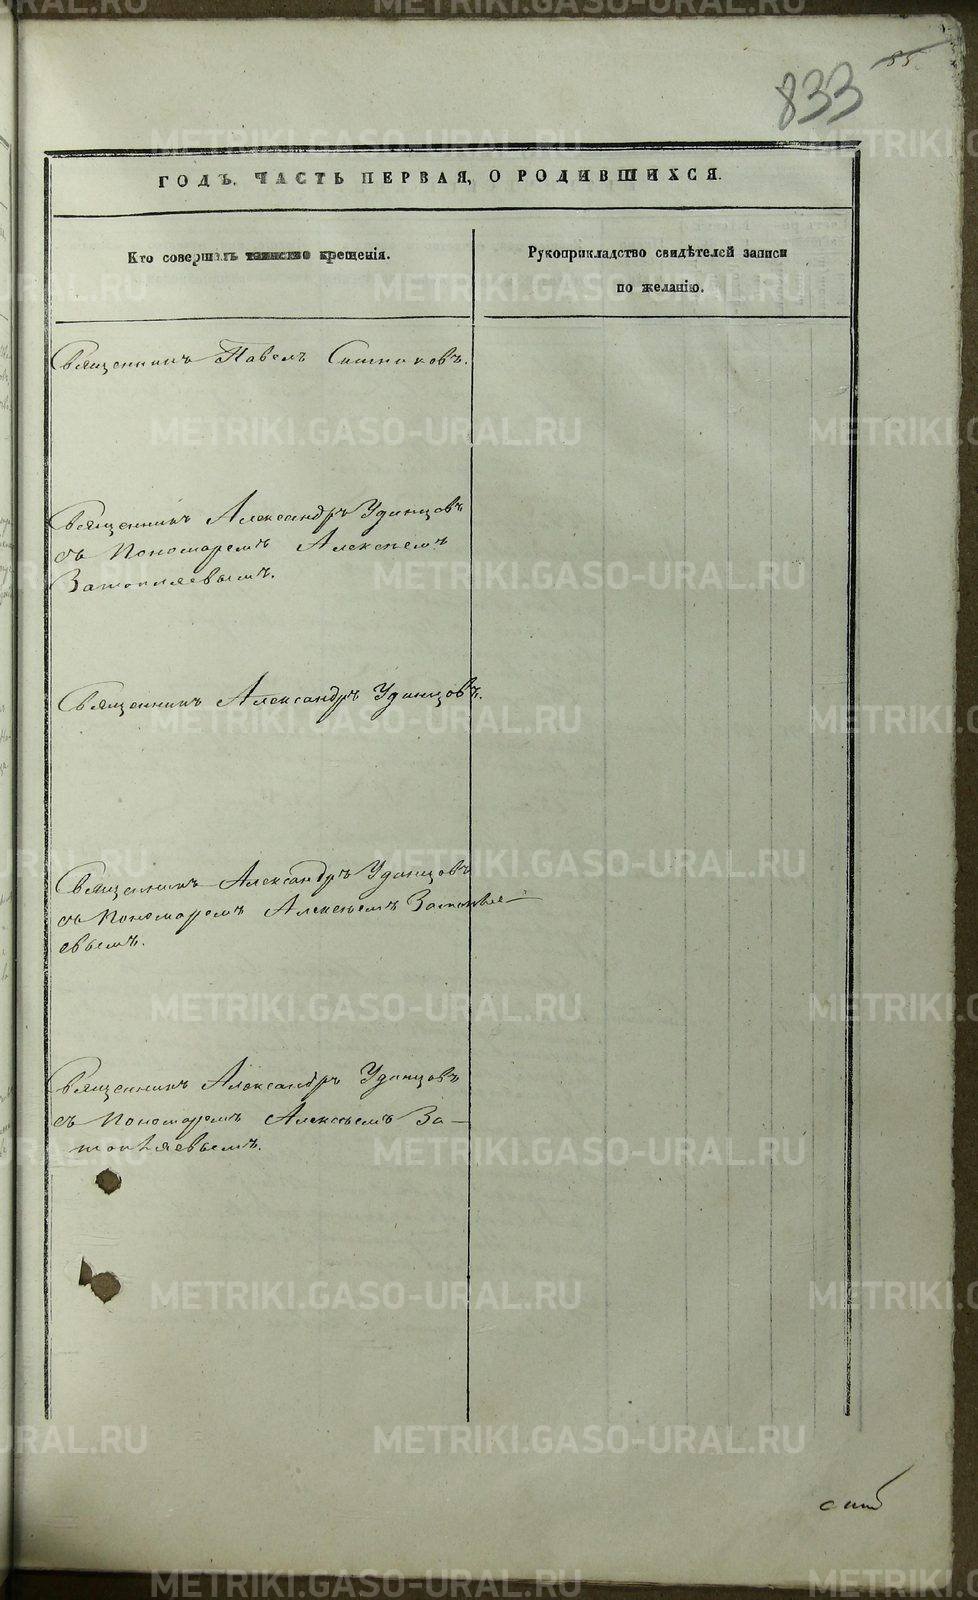 833 85
ГОДЪ. ЧАСТЬ ПЕРВАЯ, О РОДИВШИХСЯ.
Кто совершалъ таинство крещенія.
Рукоприкладство свидѣтелей записи
по желанію.
Священникъ Павелъ
Священникъ Александръ Удинцовъ
съ Пономаремъ Алексѣемъ
Затопляевымъ.
Священникъ Александръ Удинцовъ.
Священникъ Александръ Удинцовъ
съ Пономаремъ Алексѣемъ Затопля-
евымъ.
Священникъ Александръ Удинцовъ
съ Пономаремъ Алексѣемъ За-
топляевымъ.
METRIKI.GASO-URAL.RU